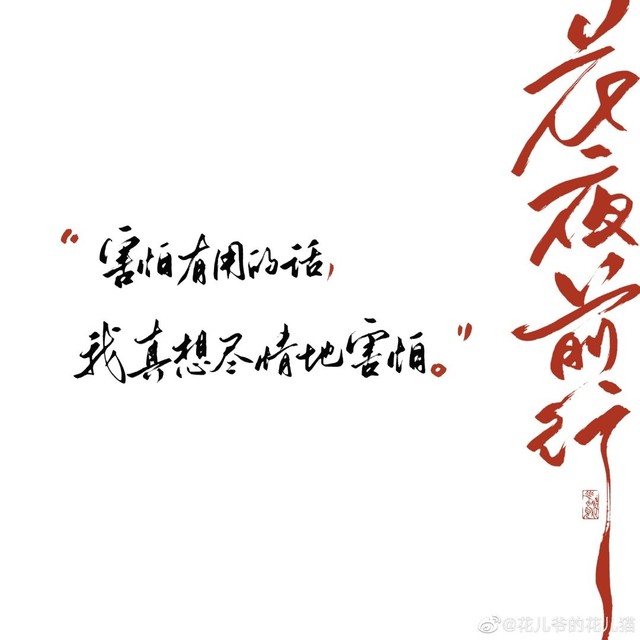 “害怕有用的话，
我真想尽情地害怕。”
花夜前行
@花儿爷的花儿猫